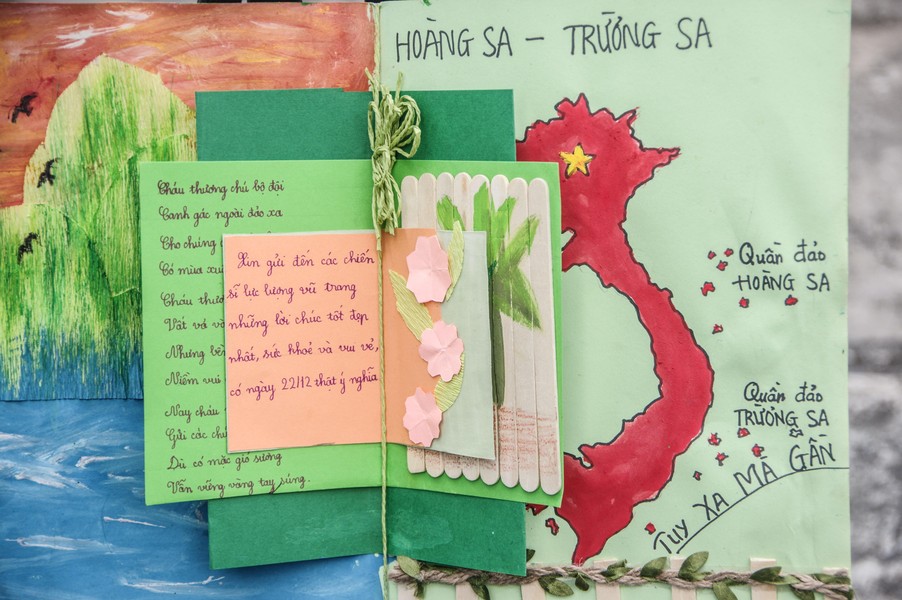 HOÀNG SA – TRƯỜNG SA
Cháu thương chú bộ đội
Canh gác ngoài đảo xa
Cho chúng
Có mùa xuâ
Cháu thươ
Vất vả
Nhưng
Niềm vui
Nay cháu
Gửi các chú
Dù có mắc gió sương
Vẫn vững vàng tay súng.
Xin gửi đến các chiến
sĩ lực lượng vũ trang
những lời chúc tốt đẹp
nhất, sức khoẻ và vui vẻ,
có ngày 22/12 thật ý nghĩa
Quần đảo
HOÀNG SA
Quần đảo
TRƯỜNG SA
Tuy XA MÀ GẦN